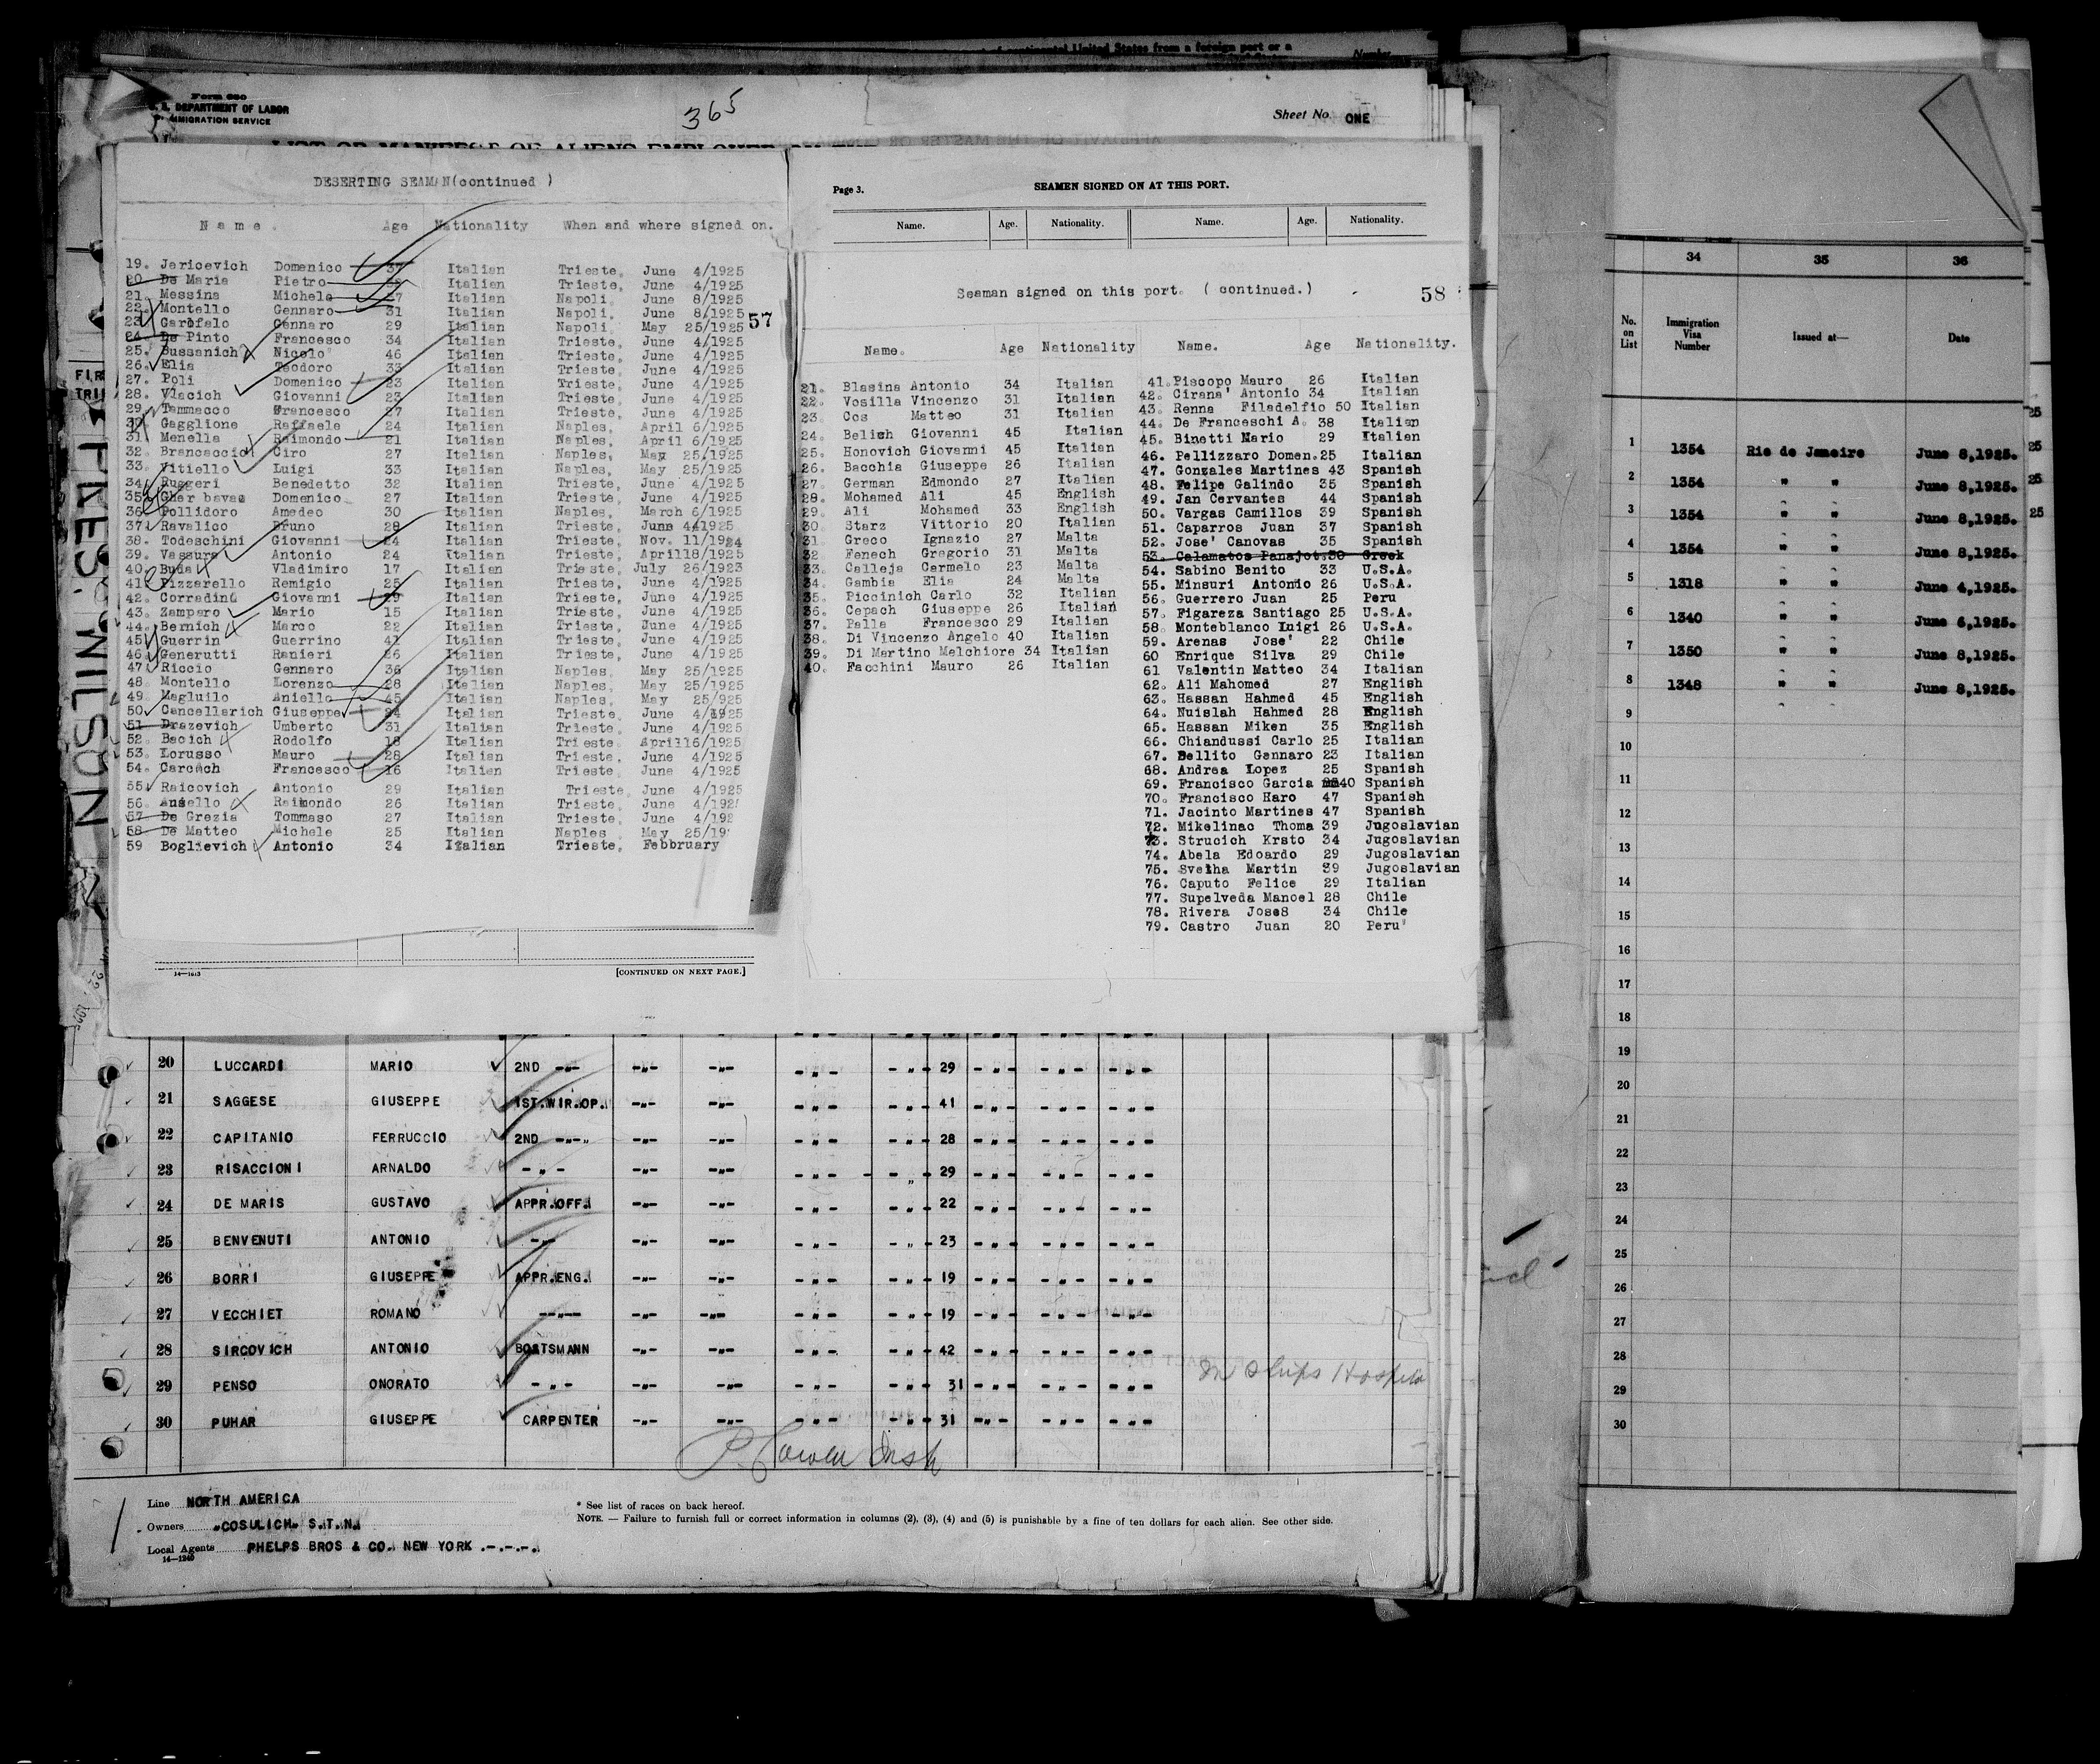 of continental United States from a foreign port or a
Number
Form 680
U. S. DEPARTMENT OF LABOR
IMMIGRATION SERVICE
365
Sheet No. ONE
LIST OR MANIFEST OF ALIENS EMPLOYED
DESERTING SEAMAN(continued )
Name. Age Nationality When and where signed on.
19. Jericevich Domenico 37 Italian Trieste, June 4/1925
20. De Maria Pietro Italian Trieste, June 4/1925
21. Messina Michele 27 Italian Napoli, June 8/1925
22. Montello Gennaro 31 Italian Napoli, June 8/1925
23. Garofalo Gennaro 29 Italian Napoli, May 25/1925
57
24. De Pinto Francesco 34 Italian Trieste, June 4/1925
25. Bussanich Nicolo' 46 Italian Trieste, June 4/1925
26. Elia Teodoro 33 Italian Trieste, June 4/1925
27. Poli Domenico 23 Italian Trieste, June 4/1925
28. Vlacich Giovanni 23 Italian Trieste, June 4/1925
29. Tammacco Francesco 27 Italian Trieste, June 4/1925
30. Gagglione Raffaele 24 Italian Naples, April 6/1925
31. Menella Raimondo 21 Italian Naples, April 6/1925
32. Brancaccio Ciro 27 Italian Naples, May 25/1925
33. Vitiello Luigi 33 Italian Naples, May 25/1925
34. Ruggeri Benedetto 32 Italian Trieste, June 4/1925
35. Gher bavaz Domenico 27 Italian Trieste, June 4/1925
36. Pollidoro Amedeo 30 Italian Naples, March 6/1925
37. Ravalico Bruno 28 Italian Trieste, June 4/1925
38. Todeschini Giovanni 24 Italian Trieste, Nov. 11/1924
39. Vassura Antonio 24 Italian Trieste, April18/1925
40. Buda Vladimiro 17 Italian Trieste, July 26/1923
41. Pizzarello Remigio 25 Italian Trieste, June 4/1925
42. Corradini Giovanni 29 Italian Trieste, June 4/1925
43. Zamparo Mario 15 Italian Trieste, June 4/1925
44. Bernich Marco 22 Italian Trieste, June 4/1925
45. Guerrin Guerrino 41 Italian Trieste, June 4/1925
46. Generutti Ranieri 26 Italian Trieste, June 4/1925
47. Riccio Gennaro 36 Italian Naples, May 25/1925
48. Montello Lorenzo 28 Italian Naples, May 25/1925
49. Magluilo Aniello 45 Italian Naples, May 25/925
50. Cancellarich Giuseppe 24 Italian Trieste, June 4/1925
51. Drazevich Umberto 31 Italian Trieste, June 4/1925
52. Bacich Rodolfo 18 Italian Trieste, April16/1925
53. Lorusso Mauro 28 Italian Trieste, June 4/1925
54. Carcich Francesco 16 Italian Trieste, June 4/1925
55. Raicovich Antonio 29 Italian Trieste, June 4/1925
56. Ausello Raimondo 26 Italian Trieste, June 4/192
57. De Grezia Tommaso 27 Italian Trieste, June 4/192
58. De Matteo Michele 25 Italian Naples May 25/19
59 Boglievich Antonio 34 Italian Trieste, Febbruary
14—1613
[CONTINUED ON NEXT PAGE.]
Page 3. SEAMEN SIGNED ON AT THIS PORT.
Name. Age. Nationality. Name. Age. Nationality.
Seaman signed on this port. ( continued.)
58
Name. Age Nationality Name. Age Nationality.
21. Blasina Antonio 34 Italian
22. Vosilla Vincenzo 31 Italian
23. Cos Matteo 31 Italian
24. Belich Giovanni 45 Italian
25. Honovich Giovanni 45 Italian
26. Bacchia Giuseppe 26 Italian
27. German Edmondo 27 Italian
28. Mohamed Ali 45 English
29. Ali Mohamed 33 English
30. Starz Vittorio 20 Italian
31. Greco Ignazio 27 Malta
32 Fenech Gregorio 31 Malta
33. Calleja Carmelo 23 Malta
34. Gambia Elia 24 Malta
35. Piccinich Carlo 32 Italian
36. Cepach Giuseppe 26 Italian
37. Palla Francesco 29 Italian
38. Di Vincenzo Angelo 40 Italian
39. Di Martino Melchiore 34 Italian
40. Facchini Mauro 26 Italian
41. Piscopo Mauro 26 Italian
42. Cirana' Antonio 34 Italian
43. Renna Filadelfio 50 Italian
44. De Franceschi A. 38 Italian
45. Binetti Mario 29 Italian
46. Pellizzaro Domen.25 Italian
47. Gonzales Martines 43 Spanish
48. Felipe Galindo 35 Spanish
49. Jan Cervantes 44 Spanish
50. Vargas Camillos 39 Spanish
51. Caparros Juan 37 Spanish
52. Jose' Canovas 35 Spanish
53. Calamatos Panajot.30 Greek
54. Sabino Benito 33 U.S.A.
55. Minsuri Antonio 26 U.S.A.
56. Guerrero Juan 25 Peru
57. Figareza Santiago 25 U.S.A.
58. Monteblanco Luigi 26 U.S.A.
59. Arenas Jose' 22 Chile
60 Enrique Silva 29 Chile
61 Valentin Matteo 34 Italian
62. Ali Mahomed 27 English
63. Hassan Hahmed 45 English
64. Nuislah Hahmed 28 English
65. Hassan Miken 35 English
66. Chiandussi Carlo 25 Italian
67. Bellito Gennaro 23 Italian
68. Andrea Lopez 25 Spanish
69. Francisco Garcia 40 Spanish
70. Francisco Haro 47 Spanish
71. Jacinto Martines 47 Spanish
72. Mikelinac Thoma 39 Jugoslavian
73. Strucich Krsto 34 Jugoslavian
74. Abela Edoardo 29 Jugoslavian
75. Svetha Martin 39 Jugoslavian
76. Caputo Felice 29 Italian
77. Supelveda Manoel 28 Chile
78. Rivera Joses 34 Chile
79. Castro Juan 20 Peru
PRES. WILSON
20 LUCCARDI MARIO 2ND -"- -"- -"- -"- -"- 29 -"- -"- -"-
21 SAGGESE GIUSEPPE 1ST.WIR.OP. -"- -"- -"- -"- 41 -"- -"- -"-
22 CAPITANIO FERRUCCIO 2ND -"-"- -"- -"- -"- -"- 28 -"- -"- -"-
23 RISACCIONI ARNALDO -"- -"- -"- -"- -"- 29 -"- -"- -"-
24 DE MARIS GUSTAVO APPR.OFF. -"- -"- -"- -"- 22 -"- -"- -"-
25 BENVENUTI ANTONIO -"- -"- -"- -"- -"- 23 -"- -"- -"-
26 BORRI GIUSEPPE APPR.ENG. -"- -"- -"- -"- 19 -"- -"- -"-
27 VECCHIET ROMANO --"-- -"- -"- -"- -"- 19 -"- -"- -"-
28 SIRCOVICH ANTONIO BOATSMANN -"- -"- -"- -"- 42 -"- -"- -"-
29 PENSO ONORATO -"- -"- -"- -"- -"- 31 -"- -"- -"-
In Ships Hospital
30 PUHAR GIUSEPPE CARPENTER -"- -"- -"- -"- 31 -"- -"- -"-
Line NORTH AMERICA
Owners "COSULICH" S.T.N.
Local Agents PHELPS BROS & CO. NEW YORK .-.-.-.
14—1240
* See list of races on back hereof.
NOTE. — Failure to furnish full or correct information in columns (2), (3), (4) and (5) is punishable by a fine of ten dollars for each alien. See other side.
34 35 36
No. on List Immigration Visa Number Issued at— Date
1 1354 Rio de Janeiro June 8,1925.
2 1354 " " June 8,1925.
3 1354 " " June 8,1925.
4 1354 " " June 8,1925.
5 1318 " " June 4,1925.
6 1340 " " June 6,1925.
7 1350 " " June 8,1925.
8 1348 " " June 8,1925.
9
10
11
12
13
14
15
16
17
18
19
20
21
22
23
24
25
26
27
28
29
30
25
25
25
25